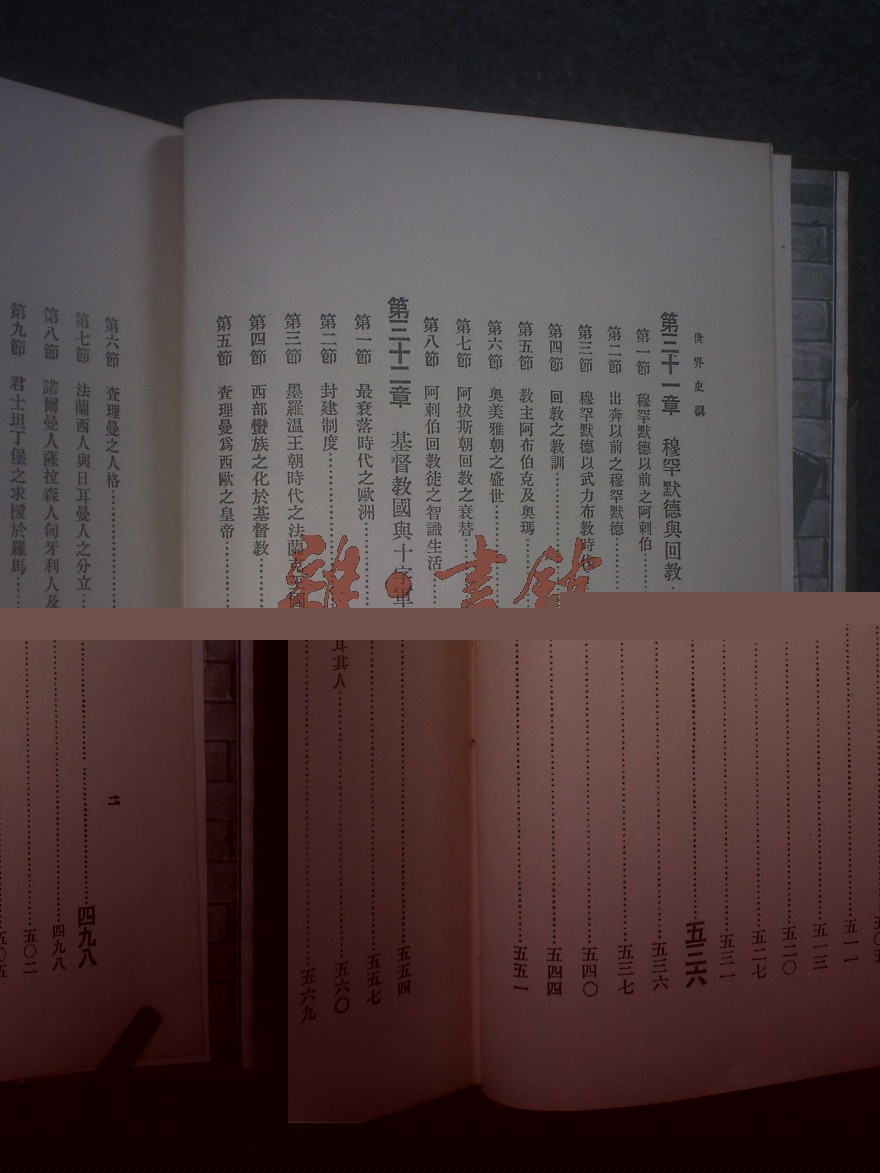 世界史綱
第三十一章　穆罕默德與回教
第一節　穆罕默德以前之阿剌伯
第二節　出奔以前之穆罕默德
第三節　穆罕默德以武力布教時代
第四節　回教之教訓
第五節　教主阿布伯克及奧瑪
第六節　奧美雅朝之盛世
第七節　阿拔斯朝回教之衰替
第八節　阿剌伯回教徒之智識生活
第三十二章　基督教國與十字軍
第一節　最衰落時代之歐洲
第二節　封建制度
第三節　墨羅溫王朝時代之法蘭克
第四節　西部蠻族之化於基督教
第五節　查理曼爲西歐之皇帝
第六節　查理曼之人格
第七節　法蘭西人與日耳曼人之分立
第八節　諾爾曼人薩拉森人匈牙利人及
第九節　君士坦丁堡之求援於羅馬
雜·書館
二
四九八
四九八
五〇二
五〇五
五〇五
五一一
五一三
五二〇
五二七
五三一
五三六
五三六
五三七
五四〇
五四四
五五一
耳其人
五五四
五五七
五六〇
五六九